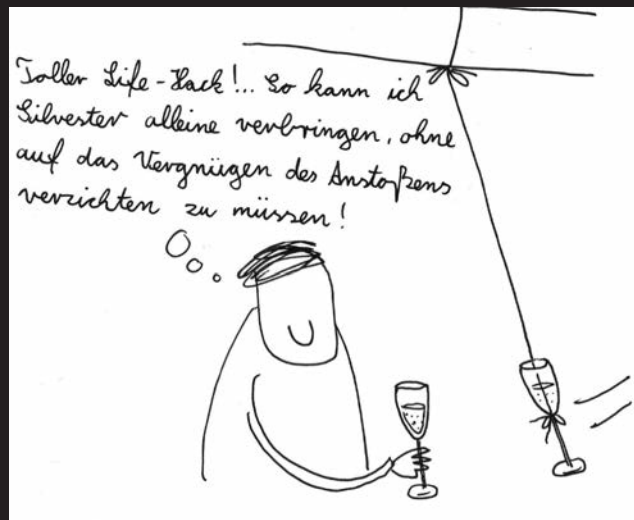 Toller Life-Hack!... So kann ich
Silvester alleine verbringen, ohne
auf das Vergnügen des Anstoßens
verzichten zu müssen!